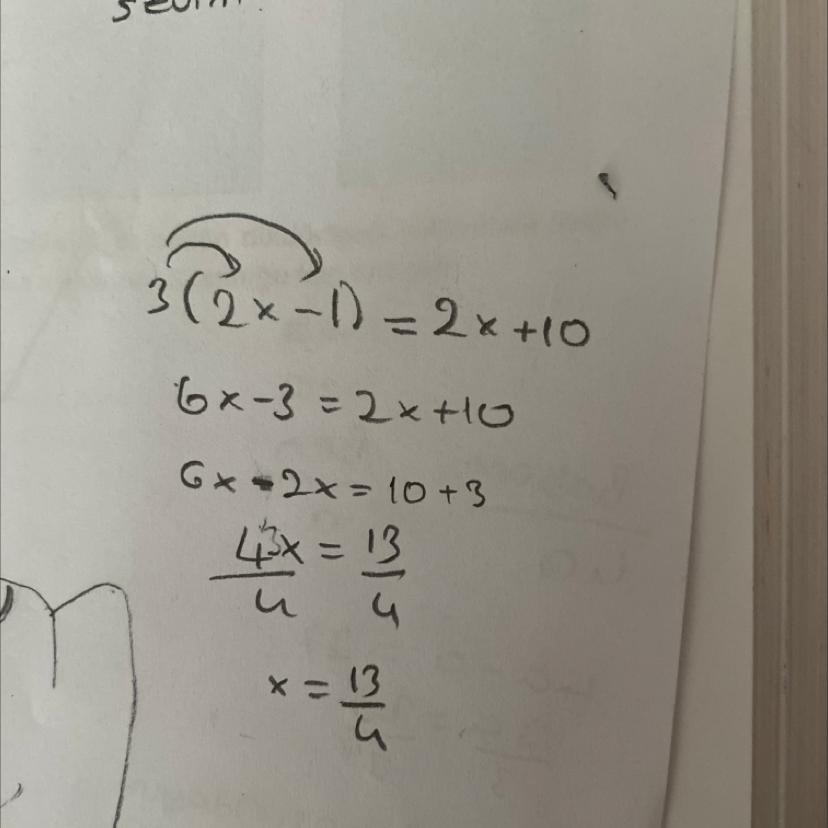 3(2x-1) = 2x+10
6x-3 = 2x+10
6x-2x = 10+3
4x/4 = 13/4
x = 13/4